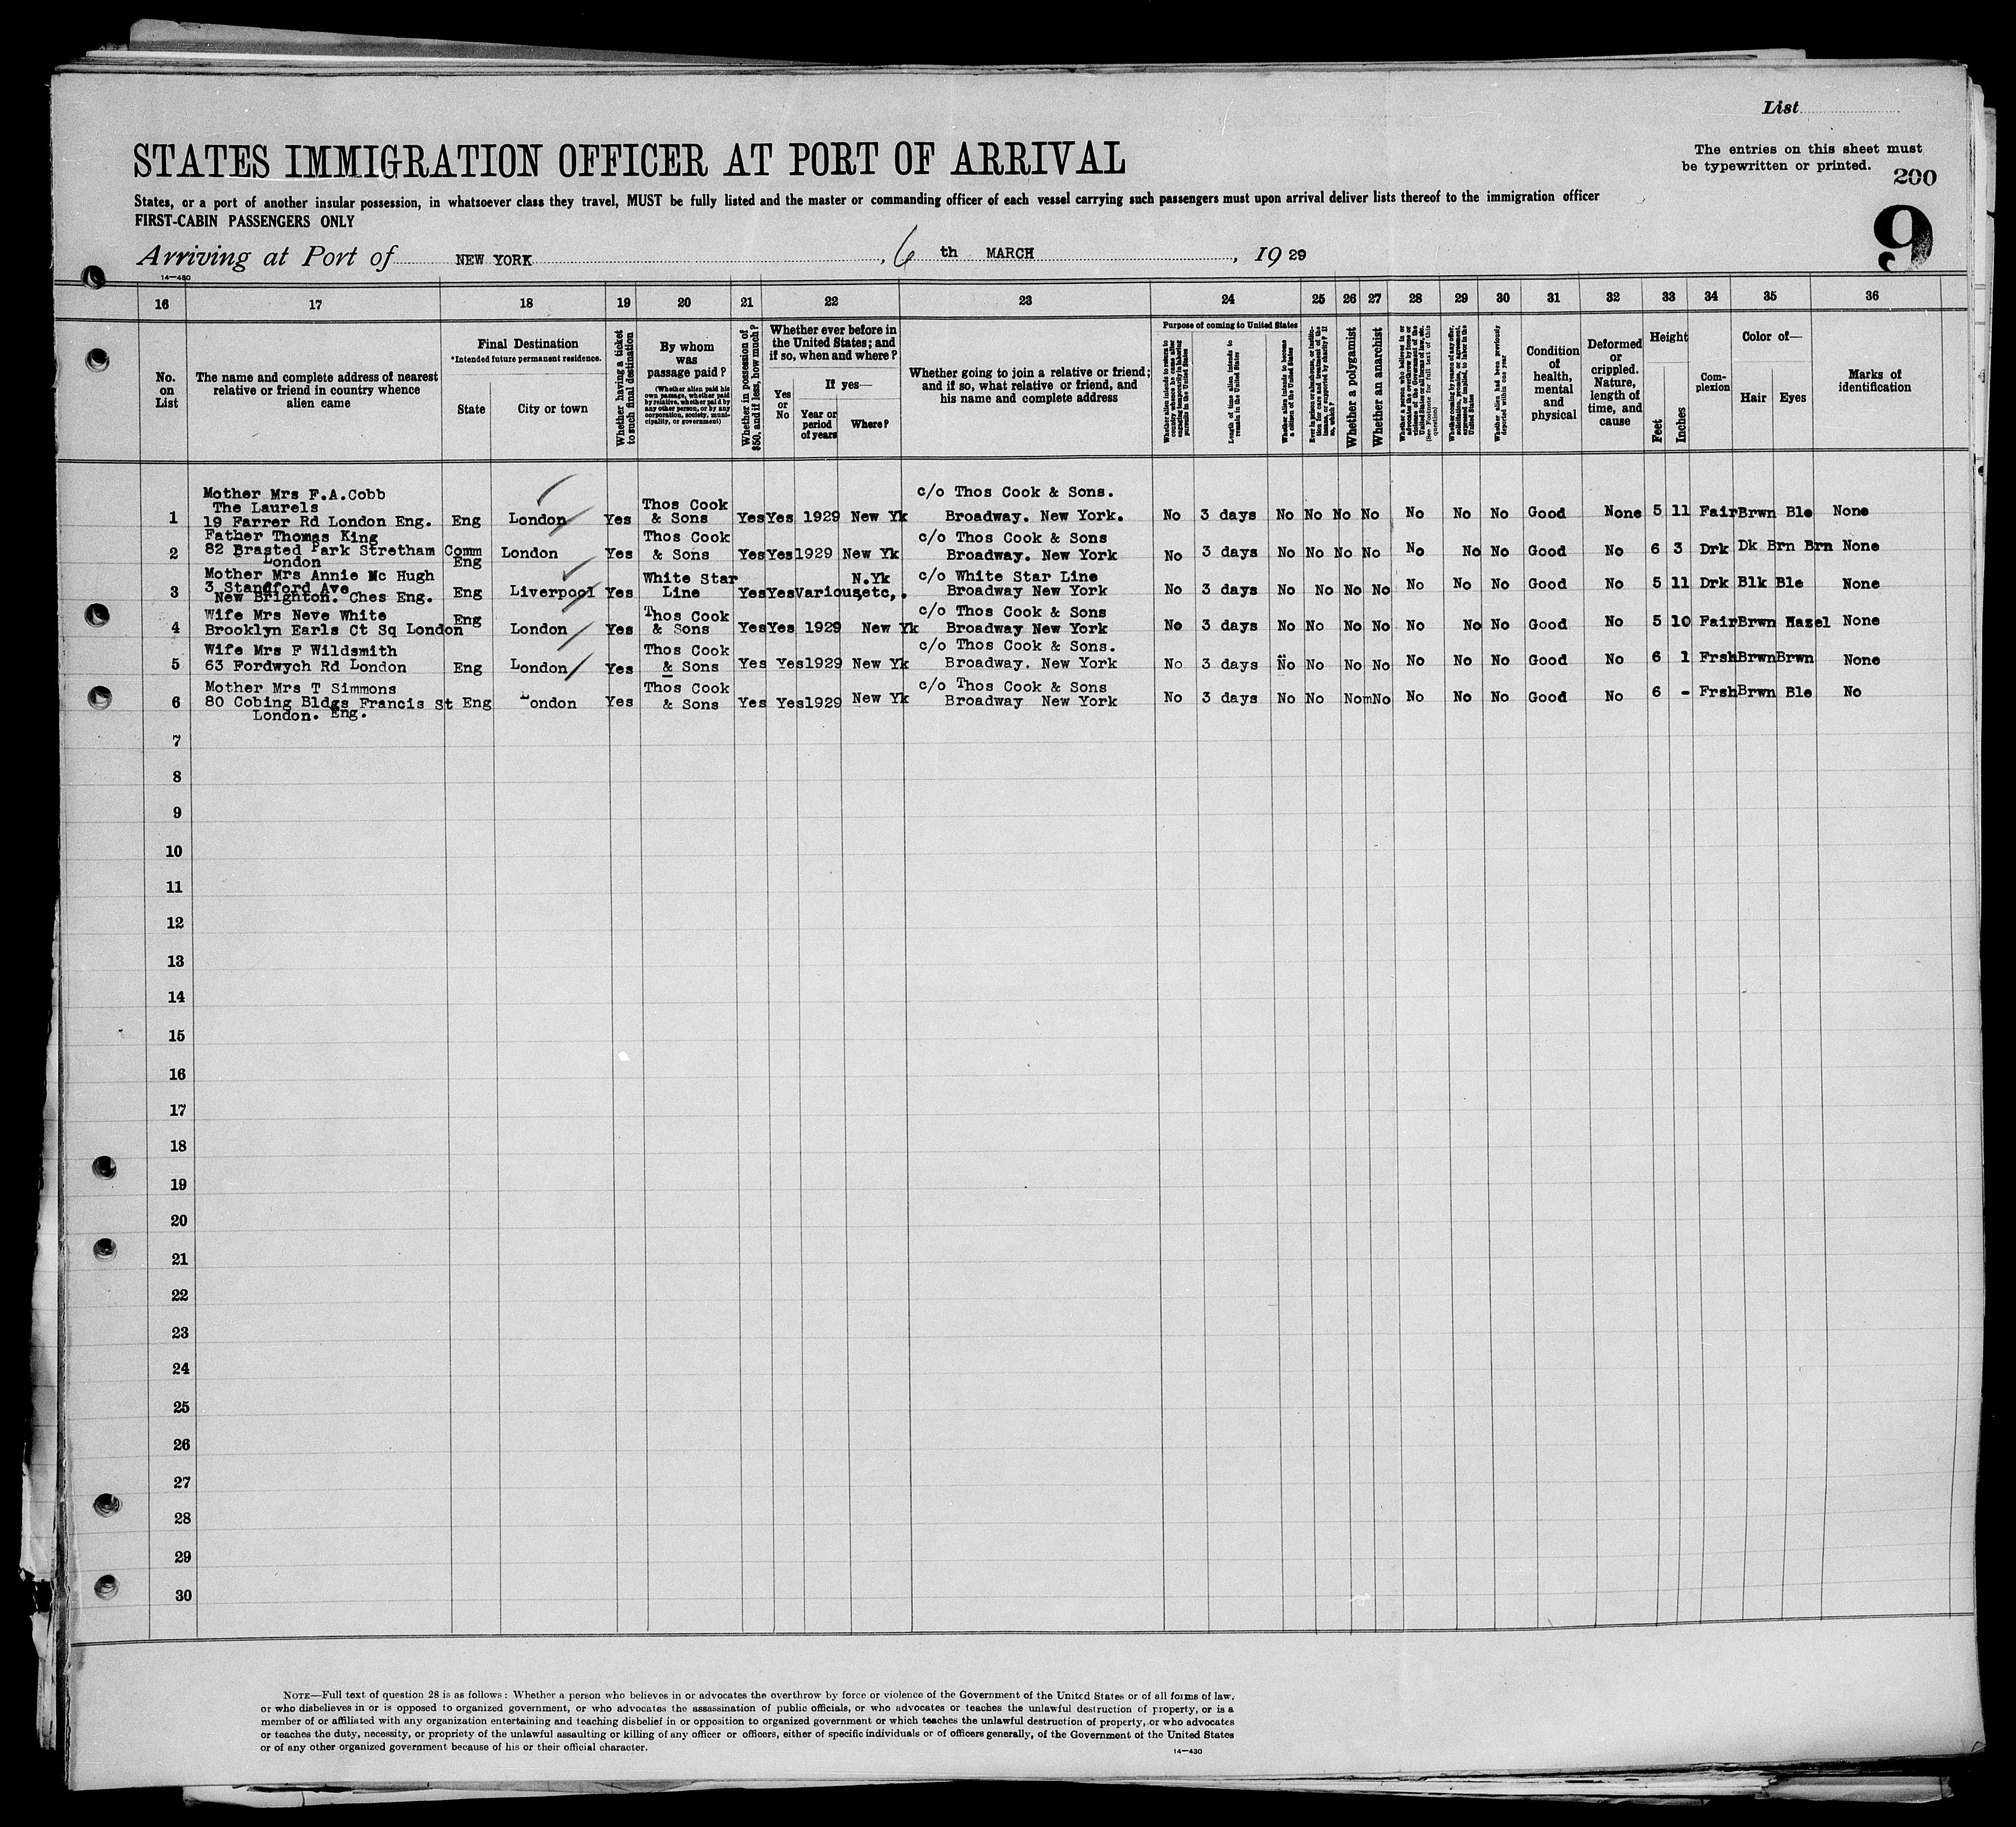 List
STATES IMMIGRATION OFFICER AT PORT OF ARRIVAL
The entries on this sheet must
be typewritten or printed.
200
States, or a port of another insular possession, in whatsoever class they travel, MUST be fully listed and the master or commanding officer of each vessel carrying such passengers must upon arrival deliver lists thereof to the immigration officer
FIRST-CABIN PASSENGERS ONLY
9
Arriving at Port of NEW YORK, 6 th MARCH, 19 29
14—430
16 17 18 19 20 21 22 23 24 25 26 27 28 29 30 31 32 33 34 35 36
No. on List
The name and complete address of nearest relative or friend in country whence alien came
Final Destination
*Intended future permanent residence.
State
City or town
Whether having a ticket to such final destination
By whom was passage paid?
(Whether alien paid his own passage, whether paid by relative, whether paid by any other person, or by any corporation, society, municipality, or government)
Whether in possession of $50, and if less, how much?
Whether ever before in the United States; and if so, when and where?
Yes or No
If yes—
Year or period of years
Where?
Whether going to join a relative or friend; and if so, what relative or friend, and his name and complete address
Purpose of coming to United States
Whether alien intends to return to country whence he came after engaging temporarily in laboring pursuits in the United States
Length of time alien intends to remain in the United States
Whether alien intends to become a citizen of the United States
Ever in prison or almshouse, or institution for care and treatment of the insane, or supported by charity? If so, which?
Whether a polygamist
Whether an anarchist
Whether a person who believes in or advocates the overthrow by force or violence of the Government of the United States or all forms of law, etc. (See Footnote for full text of this question)
Whether coming by reason of any offer, solicitation, promise, or agreement, expressed or implied, to labor in the United States
Whether alien had been previously deported within one year
Condition of health, mental and physical
Deformed or crippled. Nature, length of time, and cause
Height
Feet
Inches
Complexion
Color of—
Hair
Eyes
Marks of identification
Mother Mrs F.A.Cobb c/o Thos Cook & Sons.
The Laurels Thos Cook
1 19 Farrer Rd London Eng. Eng London Yes & Sons Yes Yes 1929 New Yk Broadway. New York. No 3 days No No No No No No No Good None 5 11 Fair Brwn Ble None
Father Thomas King Thos Cook c/o Thos Cook & Sons
2 82 Brasted Park Stretham Comm London Yes & Sons Yes Yes 1929 New Yk Broadway. New York No 3 days No No No No No No No Good No 6 3 Drk Dk Brn Brn None
London Eng
Mother Mrs Annie Mc Hugh White Star N.Yk c/o White Star Line
3 3 Standford Ave Eng Liverpool Yes Line Yes Yes Various,etc,. Broadway New York No 3 days No No No No No No No Good No 5 11 Drk Blk Ble None
New Brighton. Ches Eng.
Wife Mrs Neve White Eng Thos Cook c/o Thos Cook & Sons
4 Brooklyn Earls Ct Sq London London Yes & Sons Yes Yes 1929 New Yk Broadway New York No 3 days No No No No No No No Good No 5 10 Fair Brwn Hazel None
Wife Mrs F Wildsmith Thos Cook c/o Thos Cook & Sons.
5 63 Fordwych Rd London Eng London Yes & Sons Yes Yes 1929 New Yk Broadway. New York No 3 days No No No No No No No Good No 6 1 Frsh Brwn Brwn None
Mother Mrs T Simmons Thos Cook c/o Thos Cook & Sons
6 80 Cobing Bldgs Francis St Eng London Yes & Sons Yes Yes 1929 New Yk Broadway New York No 3 days No No NomNo No No No Good No 6 - Frsh Brwn Ble No
London. Eng.
7
8
9
10
11
12
13
14
15
16
17
18
19
20
21
22
23
24
25
26
27
28
29
30
NOTE—Full text of question 28 is as follows: Whether a person who believes in or advocates the overthrow by force or violence of the Government of the United States or of all forms of law,
or who disbelieves in or is opposed to organized government, or who advocates the assassination of public officials, or who advocates or teaches the unlawful destruction of property, or is a
member of or affiliated with any organization entertaining and teaching disbelief in or opposition to organized government or which teaches the unlawful destruction of property, or who advocates
or teaches the duty, necessity, or propriety of the unlawful assaulting or killing of any officer or officers, either of specific individuals or of officers generally, of the Government of the United States
or of any other organized government because of his or their official character.
14—430